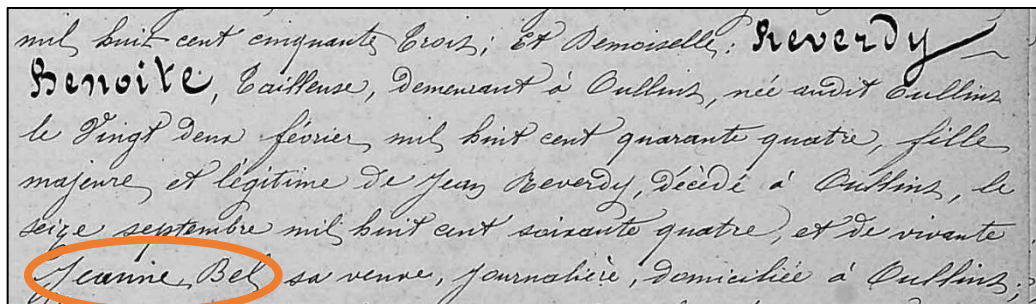 mil huit cent cinquante Trois; Et Demoiselle; Reverdy
Benoite, Tailleuse, demeurant à Oullins, née audit Oullins
le Vingt deux février mil huit cent quarante quatre, fille
majeure et légitime de Jean Reverdy, décédé à Oullins, le
seize septembre mil huit cent soixante quatre, et de vivante
Jeanne Bel sa veuve, journalière, domiciliée à Oullins;